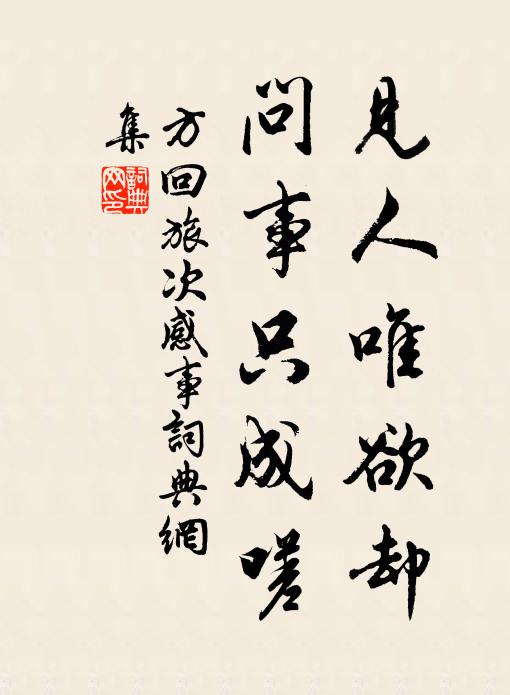 見人唯欲却
問事只成嗟
方回旅次感事詞典網
集
詞典
网印